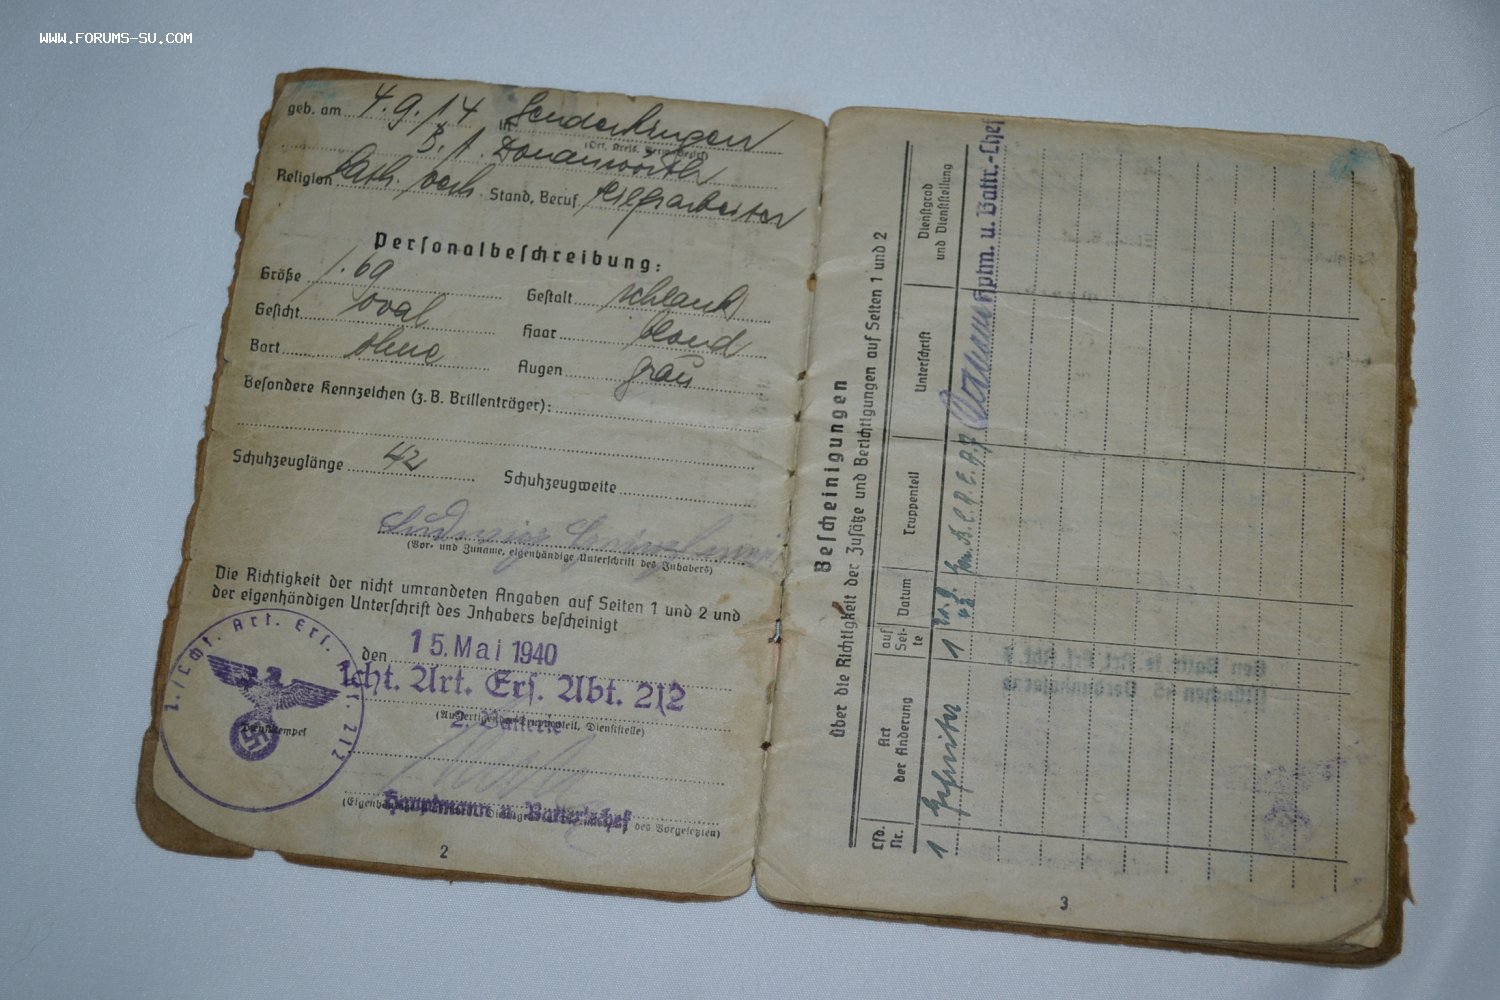 WWW.FORUMS-SU.COM
geb. am 4.9.14 in
(Ort, Kreis, Verw.-Bezirk)
B. A. Donauwörth
Religion kath. verh. Stand, Beruf Hilfsarbeiter
Personalbeschreibung:
Größe 1.69 Gestalt schlank
Gesicht oval Haar blond
Bart ohne Augen grau
Besondere Kennzeichen (z. B. Brillenträger):
Schuhzeuglänge 42 Schuhzeugweite
Ludwig
(Vor- und Zuname, eigenhändige Unterschrift des Inhabers)
Die Richtigkeit der nicht umrandeten Angaben auf Seiten 1 und 2 und
der eigenhändigen Unterschrift des Inhabers bescheinigt
den 15. Mai 1940
lcht. Art. Ers. Abt. 2/2
(Ausfertigender Truppenteil, Dienststelle)
2. Batterie
Dienststempel
Hauptmann u. Batteriechef
des Vorgesetzten)
2
Bescheinigungen
über die Richtigkeit der Zusätze und Berichtigungen auf Seiten 1 und 2
Lfd. Nr.
Art der Änderung
auf Seite
Datum
Truppenteil
Unterschrift
Dienstgrad und Dienststellung
1 1 Hptm. u. Battr.-Chef
3